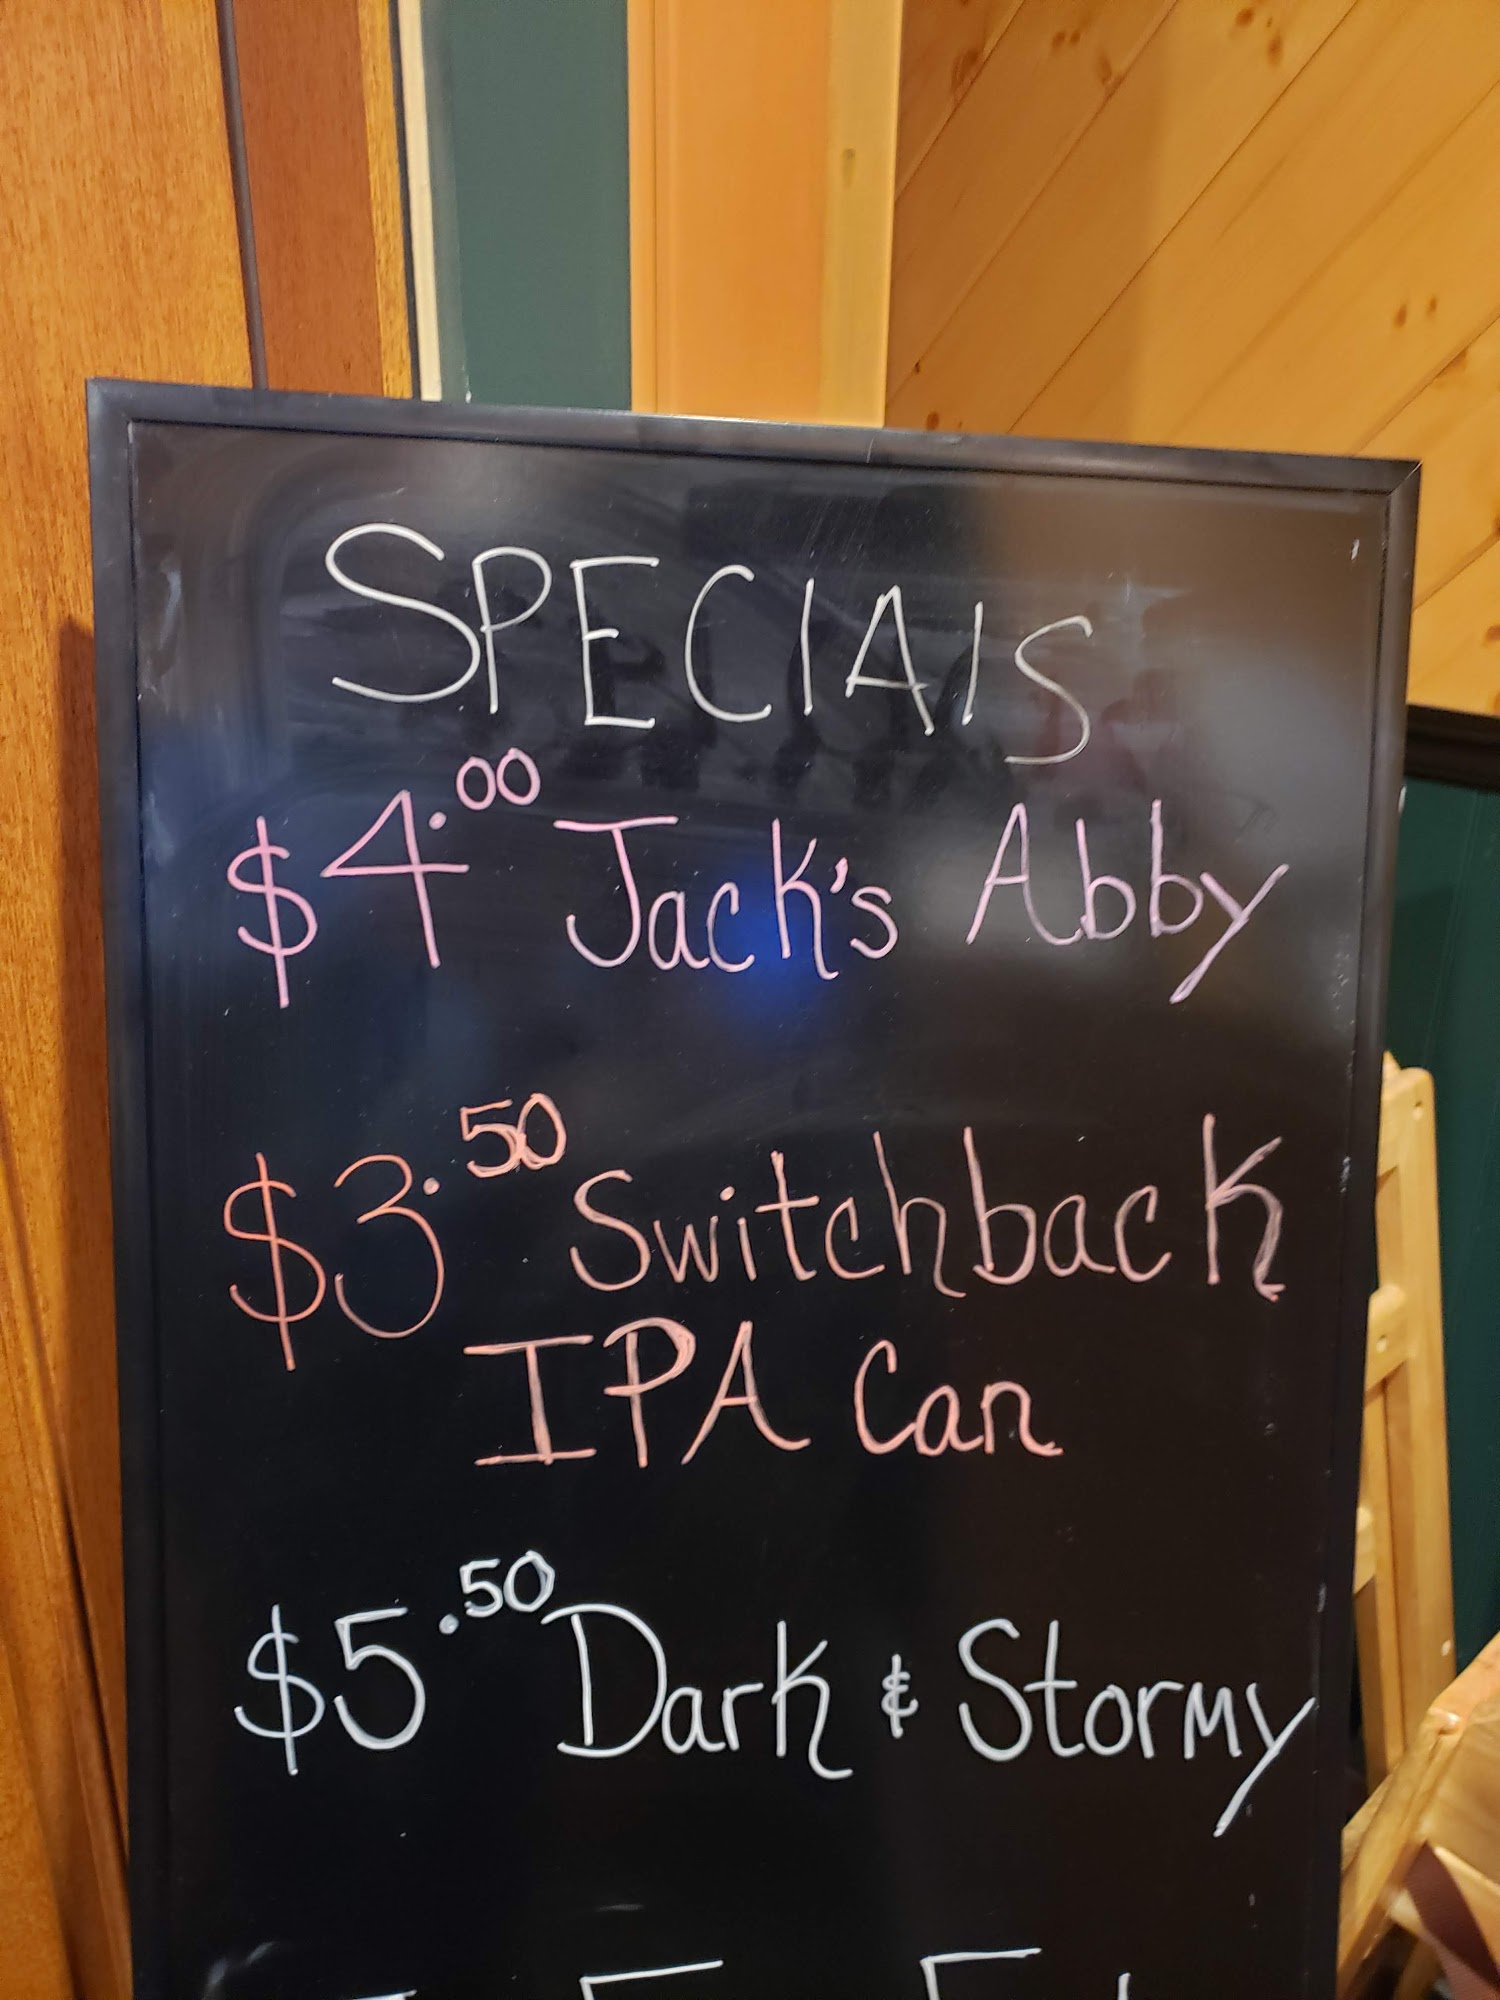 SPECIAlS
$4.00 Jack's Abby
$3.50 Switchback
IPA Can
$5.50 Dark & Stormy